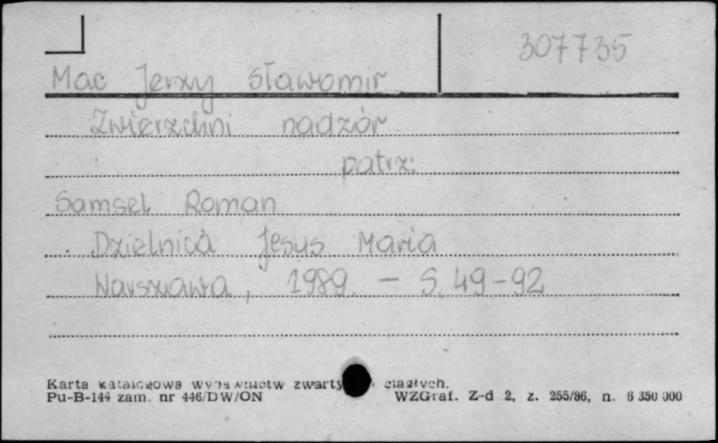 307735
Mac Jerzy Sławomir
Zwierzchni nadzór
patrz:
Samsel Roman
Dzielnica Jesus Maria
Warszawa, 1989. - S. 49-92
Karta katalogowa wydawnictw zwartych ciągłych.
Pu-B-144 zam. nr 446/DW/ON WZGraf. Z-d 2, z. 255/86, n. 6 350 000